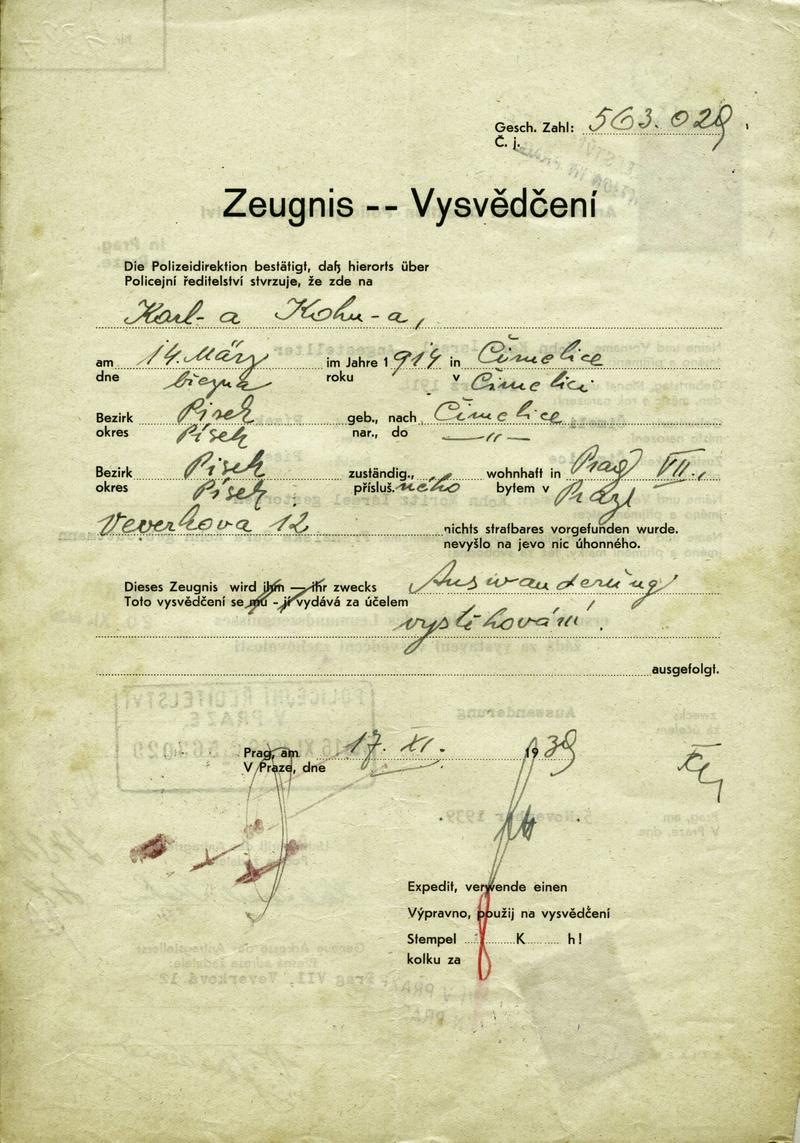 Gesch. Zahl: 563.029
Č. j.
Zeugnis -- Vysvědčení
Die Polizeidirektion bestätigt, daß hierorts über
Policejní ředitelství stvrzuje, že zde na
Karl-a Kohn-a,
am 14. März im Jahre 1914 in Čimelice
dne března roku v Čimelici
Bezirk Pisek geb., nach Čimelice
okres Písek nar., do —〃—
Bezirk Pisek zuständig., wohnhaft in Prag VII.,
okres Písek přísluš. ného bytem v Praze
Veverkova 12 nichts strafbares vorgefunden wurde.
nevyšlo na jevo nic úhonného.
Dieses Zeugnis wird ihm — ihr zwecks Auswanderung
Toto vysvědčení se mu - jí vydává za účelem
vystěhování.
ausgefolgt.
Prag, am 17. XI. 1939
V Praze, dne
Expedit, verwende einen
Výpravno, použij na vysvědčení
Stempel K h!
kolku za
Prag VII, Veverkova 12